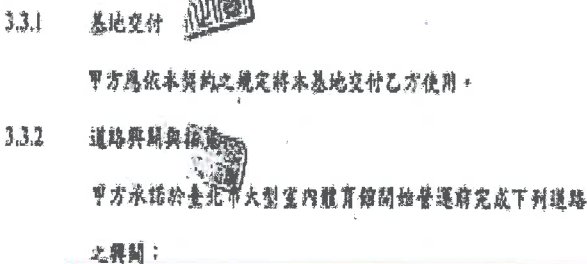 3.3.1 基地交付
甲方應依本契約之規定將本基地交付乙方使用。
3.3.2 道路興闢與拓寬
甲方承諾於臺北市大型室內體育館開始營運前完成下列道路
之興闢：